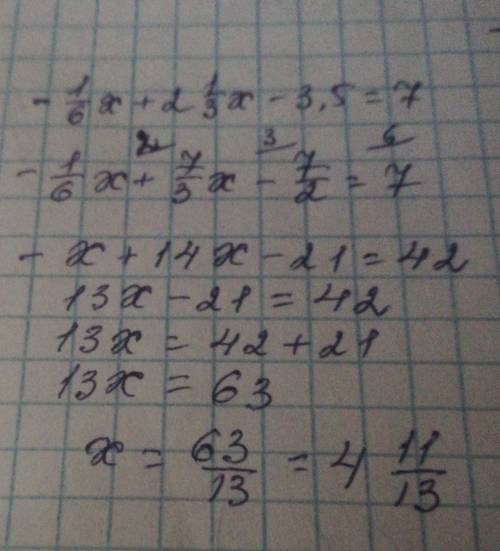 - 1/6 x + 2 1/3 x - 3,5 = 7
2 3 6
- 1/6 x + 7/3 x - 7/2 = 7
- x + 14x - 21 = 42
13x - 21 = 42
13x = 42 + 21
13x = 63
x = 63/13 = 4 11/13